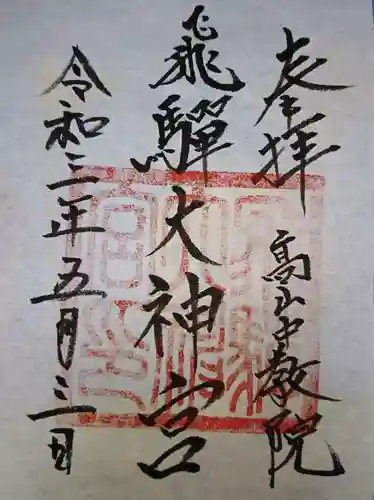 奉拝
高山中教院
飛驒大神宮
令和三年五月三日